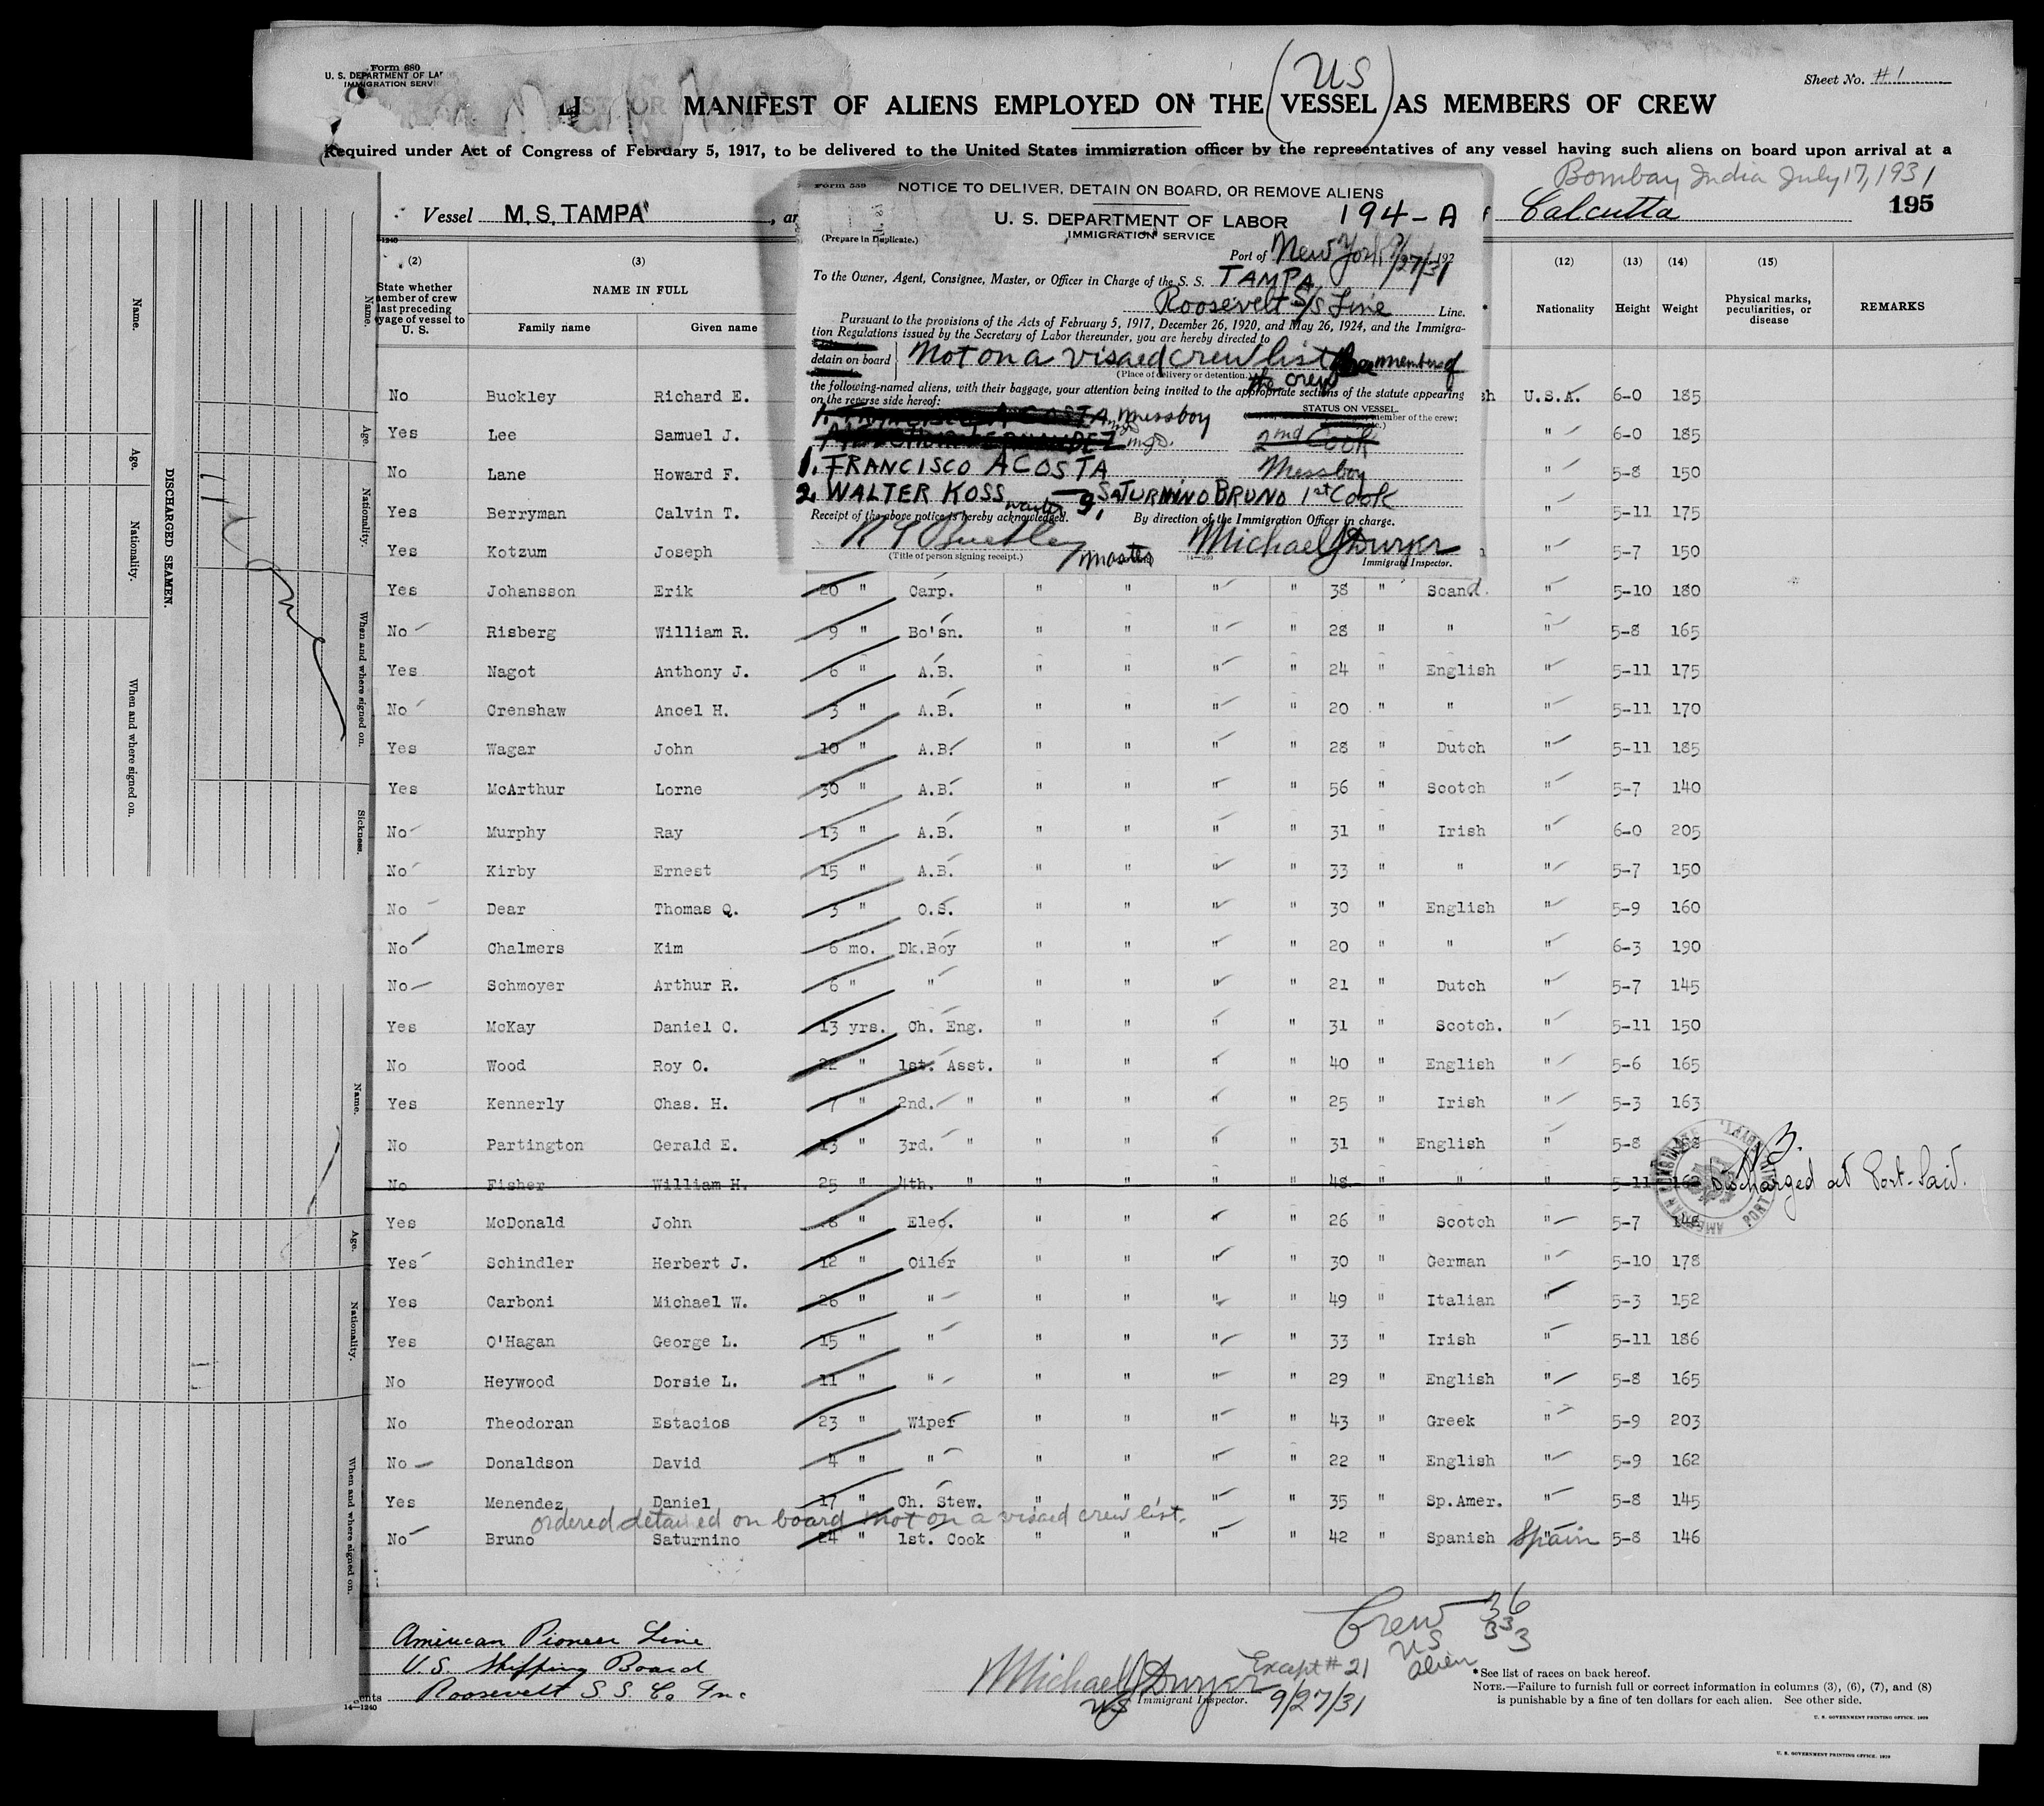 Form 680
U. S. DEPARTMENT OF LA
IMMIGRATION SERVI
Sheet No. #1
(US)
LIST OR MANIFEST OF ALIENS EMPLOYED ON THE VESSEL AS MEMBERS OF CREW
Required under Act of Congress of February 5, 1917, to be delivered to the United States immigration officer by the representatives of any vessel having such aliens on board upon arrival at a
Bombay India July 17, 1931
Vessel M.S. TAMPA , ar
Calcutta 195
Form 559
NOTICE TO DELIVER, DETAIN ON BOARD, OR REMOVE ALIENS
U. S. DEPARTMENT OF LABOR 194-A
IMMIGRATION SERVICE
(Prepare in Duplicate.)
Port of New York, 9/27/31, 192
To the Owner, Agent, Consignee, Master, or Officer in Charge of the S. S. TAMPA
Roosevelt S/S Line Line.
Pursuant to the provisions of the Acts of February 5, 1917, December 26, 1920, and May 26, 1924, and the Immigra-
tion Regulations issued by the Secretary of Labor thereunder, you are hereby directed to
detain on board Not on a visaed crew list members of
(Place of delivery or detention.) the crew
the following-named aliens, with their baggage, your attention being invited to the appropriate sections of the statute appearing
on the reverse side hereof:
STATUS ON VESSEL
member of the crew;
1. FRANCISCO ACOSTA, Messboy
mgd. 2nd Cook
1. FRANCISCO ACOSTA Messboy
2. WALTER KOSS waiter 3, SATURNINO BRUNO 1st Cook
Receipt of the above notice is hereby acknowledged. By direction of the Immigration Officer in charge.
Master Michael J Dwyer
(Title of person signing receipt.) 14-559 Immigrant Inspector.
14-1240
(2) (3) (12) (13) (14) (15)
State whether
member of crew
last preceding
voyage of vessel to
U. S.
NAME IN FULL
Family name Given name
Nationality Height Weight Physical marks, peculiarities, or disease REMARKS
No Buckley Richard E. U.S.A. 6-0 185
Yes Lee Samuel J. " 6-0 185
No Lane Howard F. " 5-8 150
Yes Berryman Calvin T. " 5-11 175
Yes Kotzum Joseph " 5-7 150
Yes Johansson Erik 20 " Carp. " " " " 38 " Scand. " 5-10 180
No Risberg William R. 9 " Bo'sn. " " " " 28 " " " 5-8 165
Yes Nagot Anthony J. 6 " A.B. " " " " 24 " English " 5-11 175
No Crenshaw Ancel H. 3 " A.B. " " " " 20 " " " 5-11 170
Yes Wagar John 10 " A.B. " " " " 28 " Dutch " 5-11 185
Yes McArthur Lorne 30 " A.B. " " " " 56 " Scotch " 5-7 140
No Murphy Ray 13 " A.B. " " " " 31 " Irish " 6-0 205
No Kirby Ernest 15 " A.B. " " " " 33 " " " 5-7 150
No Dear Thomas Q. 3 " O.S. " " " " 30 " English " 5-9 160
No Chalmers Kim 6 mo. Dk.Boy " " " " 20 " " " 6-3 190
No Schmoyer Arthur R. 6 " " " " " " 21 " Dutch " 5-7 145
Yes McKay Daniel C. 13 yrs. Ch. Eng. " " " " 31 " Scotch. " 5-11 150
No Wood Roy O. 22 " 1st. Asst. " " " " 40 " English " 5-6 165
Yes Kennerly Chas. H. 7 " 2nd. " " " " " 25 " Irish " 5-3 163
No Partington Gerald E. 13 " 3rd. " " " " " 31 " English " 5-8
No Fisher William H. 25 " 4th. " " " " " 48 " " " 5-11 162 Discharged at Port-Said.
Yes McDonald John 8 " Elec. " " " " 26 " Scotch " 5-7 148
Yes Schindler Herbert J. 12 " Oiler " " " " 30 " German " 5-10 178
Yes Carboni Michael W. 26 " " " " " " 49 " Italian " 5-3 152
Yes O'Hagan George L. 15 " " " " " " 33 " Irish " 5-11 186
No Heywood Dorsie L. 11 " " " " " " 29 " English " 5-8 165
No Theodoran Estacios 23 " Wiper " " " " 43 " Greek " 5-9 203
No Donaldson David 4 " " " " " " 22 " English " 5-9 162
Yes Menendez Daniel 17 " Ch. Stew. " " " " 35 " Sp.Amer. " 5-8 145
ordered detained on board not on a visaed crew list.
No Bruno Saturnino 24 " 1st. Cook " " " " 42 " Spanish Spain 5-8 146
Crew 36
US 33
Alien 3
American Pioneer Line
U.S. Shipping Board
Agents Roosevelt S S Co Inc
14—1240
Michael J Dwyer Except #21
US Immigrant Inspector. 9/27/31
*See list of races on back hereof.
NOTE.—Failure to furnish full or correct information in columns (3), (6), (7), and (8)
is punishable by a fine of ten dollars for each alien. See other side.
U. S. GOVERNMENT PRINTING OFFICE. 1929
U. S. GOVERNMENT PRINTING OFFICE. 1929
DISCHARGED SEAMEN.
Name. Age. Nationality. When and where signed on.
Name. Age. Nationality. When and where signed on. Sickness.
Name. Age. Nationality. When and where signed on.